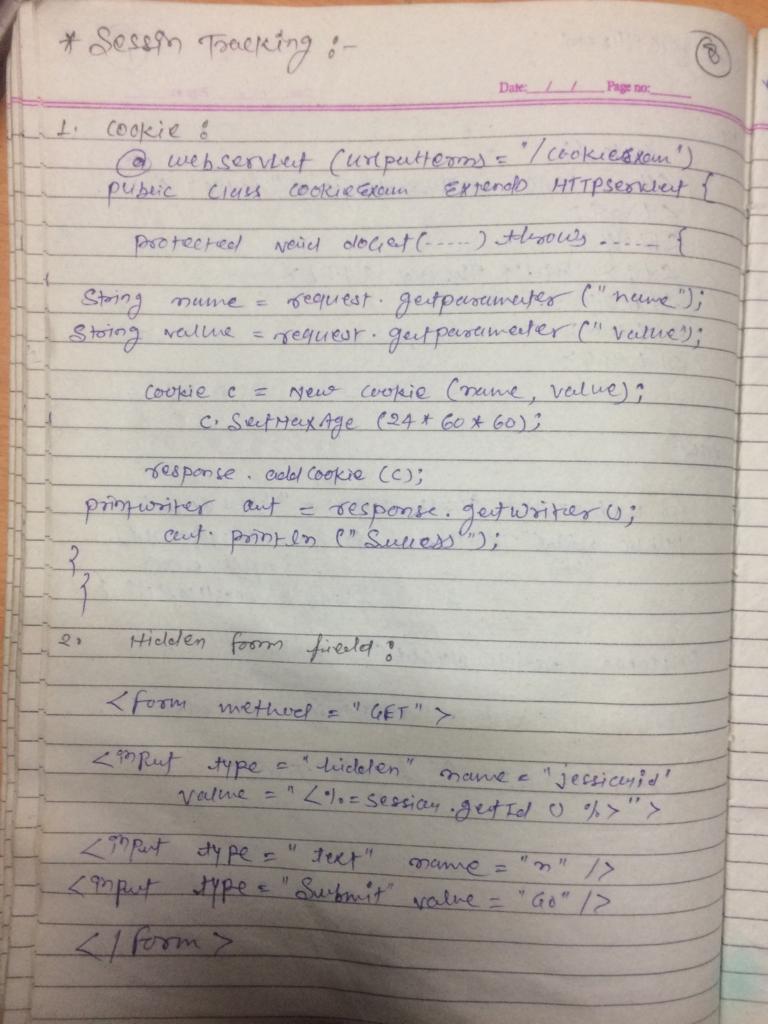 * Sessin Tracking :-
8
Date: / / Page no:
1. Cookie :
@ webservlet (urlpatterns = "/CookieExam")
public class CookieExam Extends HTTPServlet {
protected void doGet(.....) throws ..... {
String name = request. getparameter ("name");
String value = request. getparameter ("value");
Cookie c = New Cookie (name, value);
c. SetMaxAge (24 * 60 * 60);
response. addCookie (c);
printwriter out = response. getwriter ();
out. println ("Success");
}
}
2. Hidden form field :
<form method = "GET">
<input type = "hidden" name = "jessionid"
value = "<%= session.getId () %>">
<input type = "text" name = "n" />
<input type = "Submit" value = "Go" />
</form>